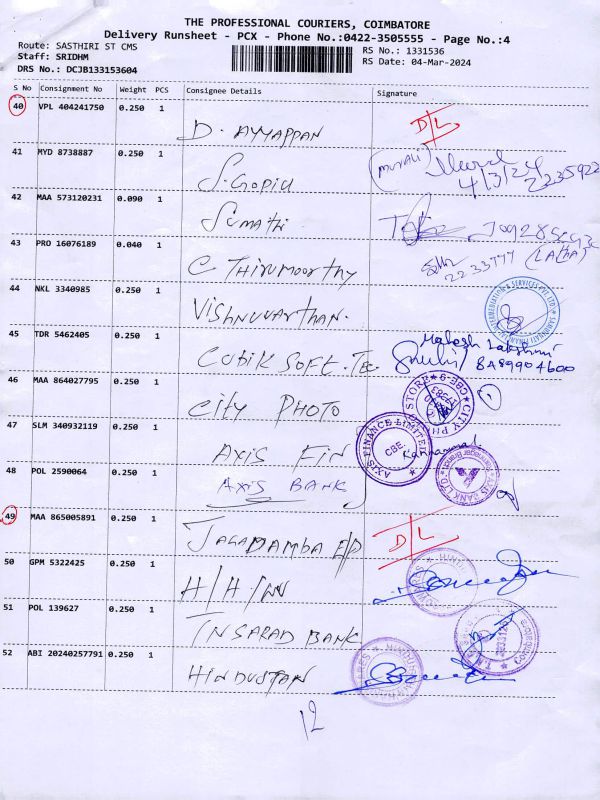 THE PROFESSIONAL COURIERS, COIMBATORE
Delivery Runsheet - PCX - Phone No.:0422-3505555 - Page No.:4
Route: SASTHIRI ST CMS
RS No.: 1331536
Staff: SRIDHM
RS Date: 04-Mar-2024
DRS No.: DCJB133153604
S No Consignment No Weight PCS Consignee Details Signature
40 VPL 404241750 0.250 1 D. AYYAPPAN D/L
41 MYD 8738887 0.250 1 S. Gopiu (MURALI) 4/3/24
42 MAA 573120231 0.090 1 Sumathi
43 PRO 16076189 0.040 1 C Thirumoorthy 2233777 (LATHA)
44 NKL 3340985 0.250 1 Vishnuvarthan.
45 TDR 5462405 0.250 1 Cubik Soft. Tec Mahesh Lakshmi
46 MAA 864027795 0.250 1 City PHOTO CITY PH STORE CBE-9
47 SLM 340932119 0.250 1 AXIS FIN AXIS FINANCE LIMITED CBE.
48 POL 2590064 0.250 1 AXIS BANK AXIS BANK LTD.
49 MAA 865005891 0.250 1 JAGADAMBA E/D D/L
50 GPM 5322425 0.250 1 H/H/
51 POL 139627 0.250 1 BANK
52 ABI 20240257791 0.250 1 HINDUSTAN
12